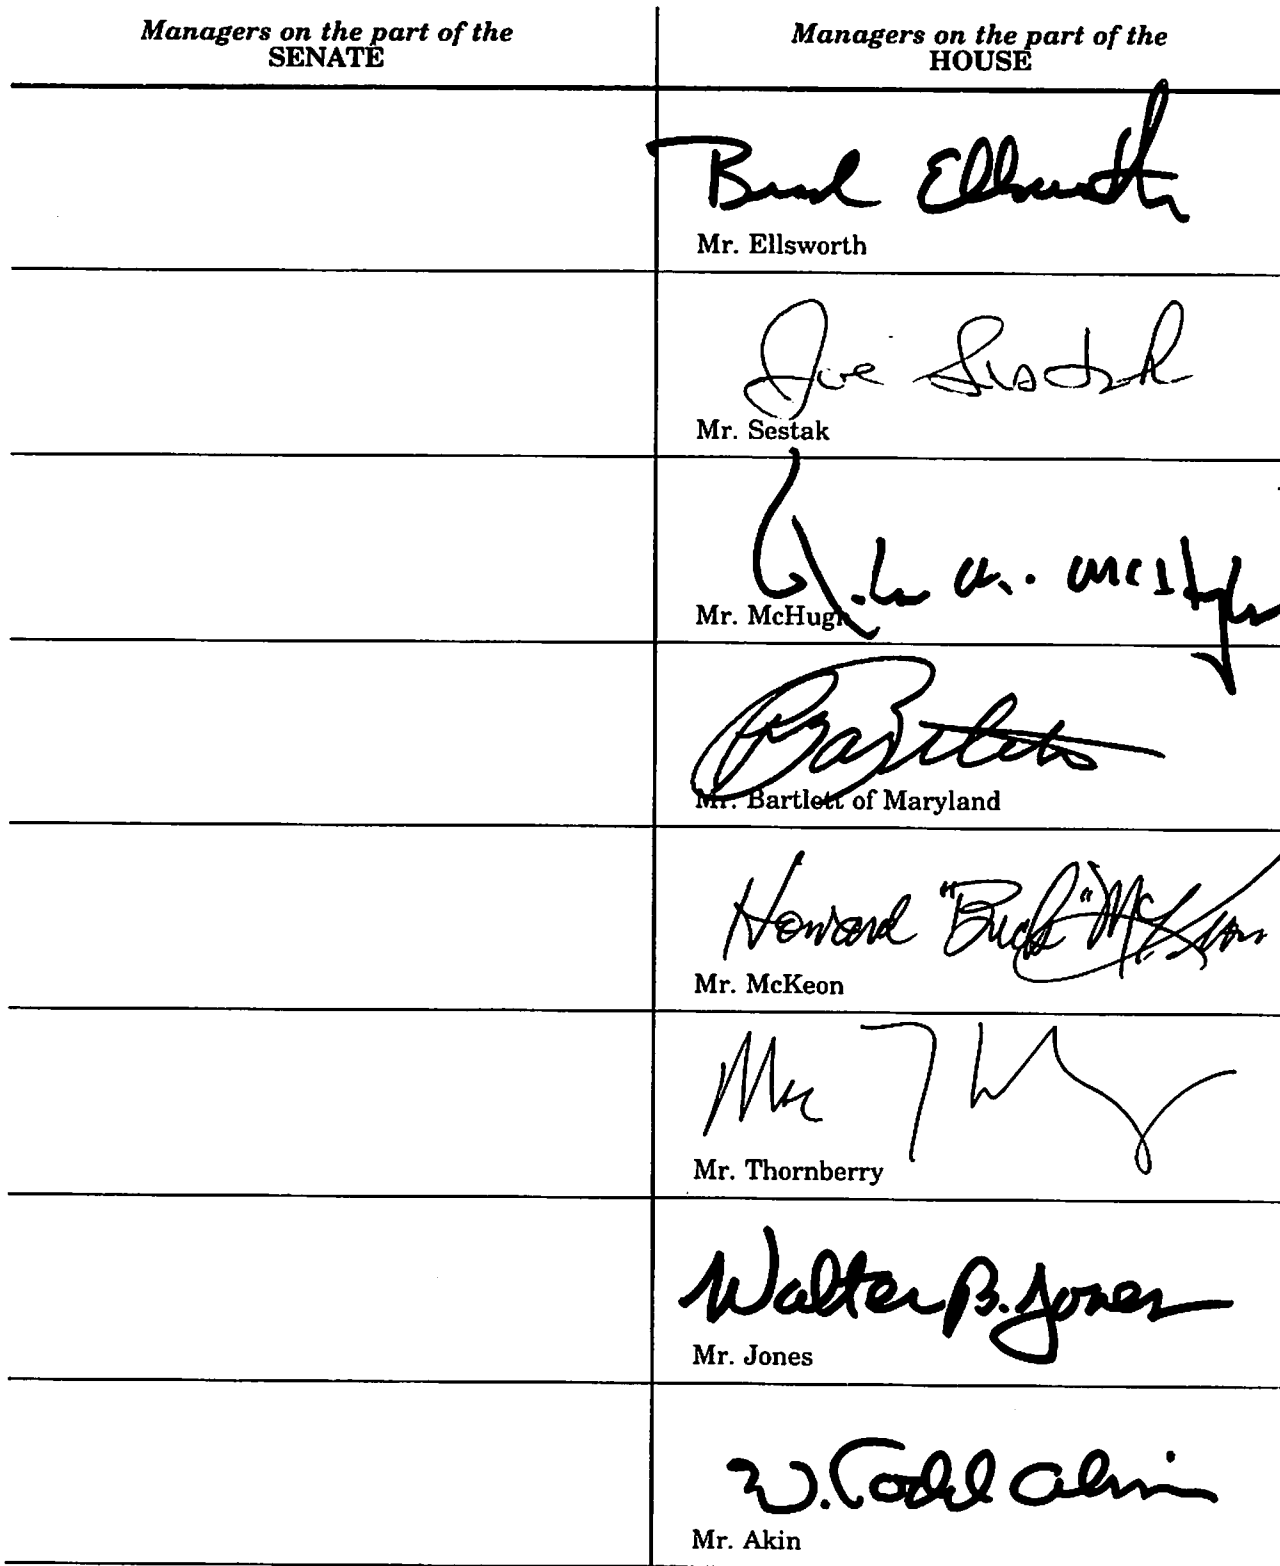 Managers on the part of the
SENATE
Managers on the part of the
HOUSE
Brad Ellsworth
Mr. Ellsworth
Joe Sestak
Mr. Sestak
John M. McHugh
Mr. McHugh
Bartlett
Mr. Bartlett of Maryland
Howard "Buck" McKeon
Mr. McKeon
Mac Th
Mr. Thornberry
Walter B. Jones
Mr. Jones
W. Todd Akin
Mr. Akin